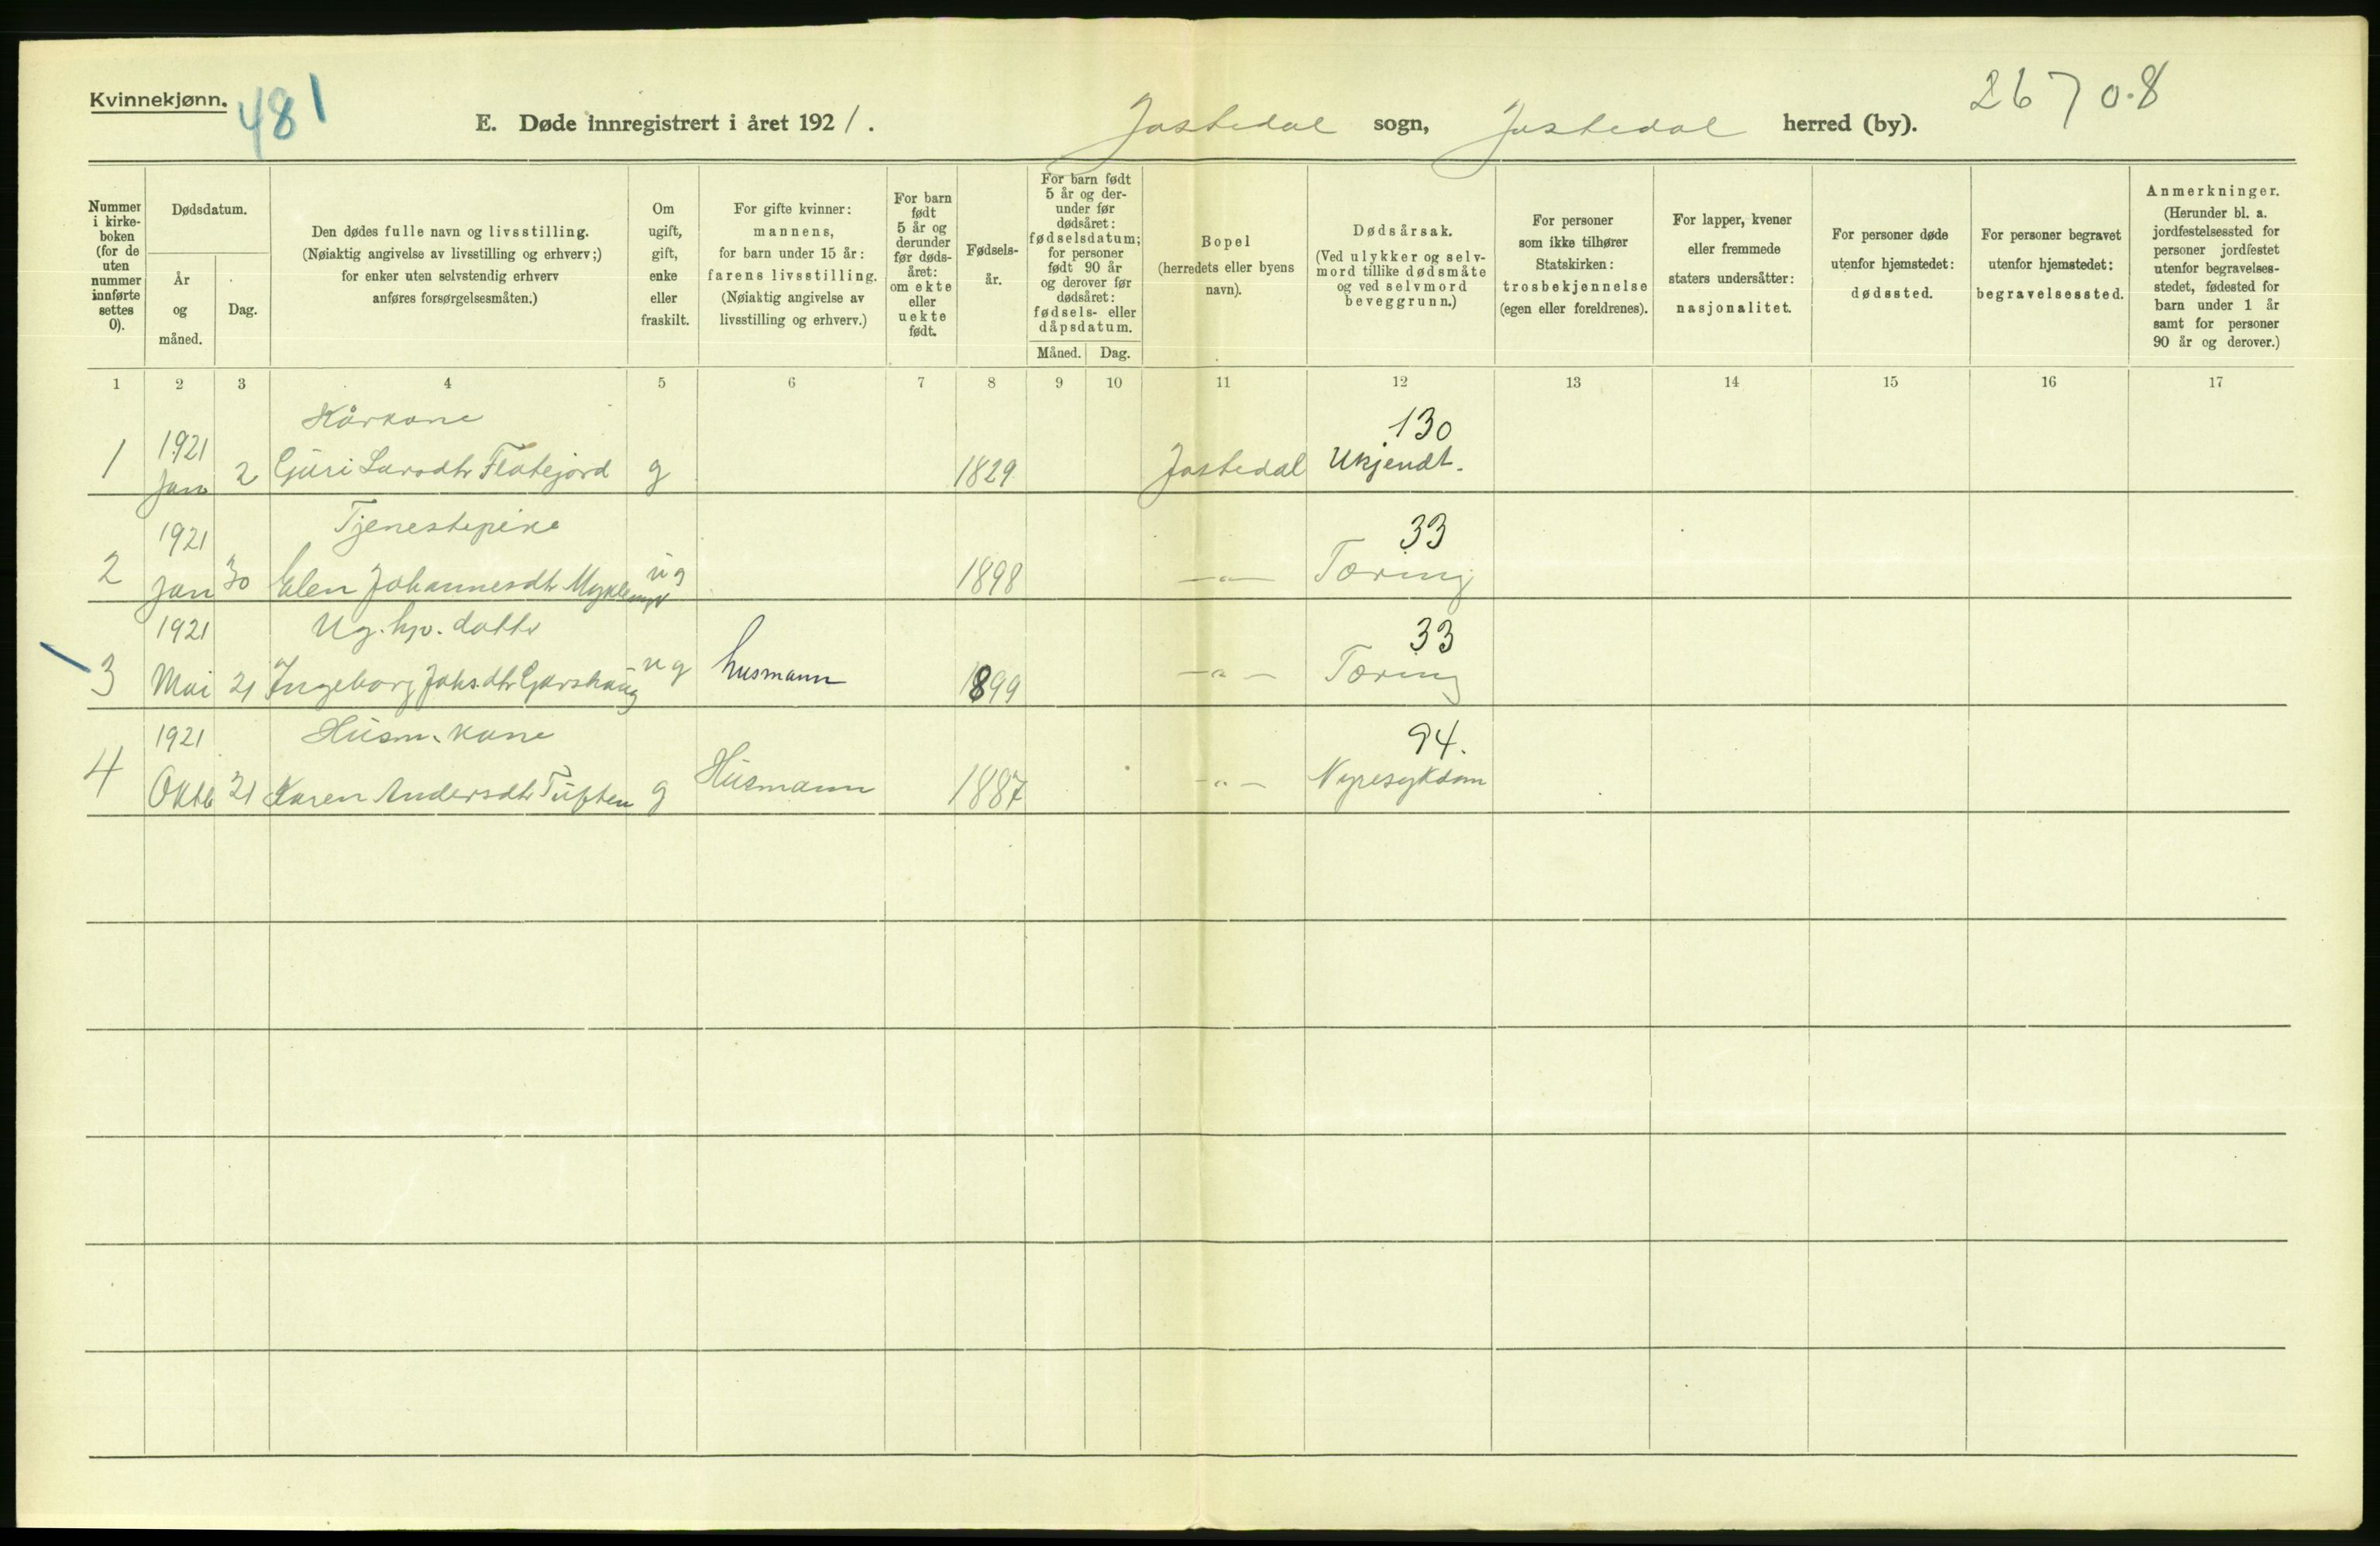 Kvinnekjønn.
481
E. Døde innregistrert i året 1921.
Jostedal sogn, Jostedal herred (by).
26708
Nummer i kirke-boken (for de uten nummer innførte settes 0).
Dødsdatum.
År og måned.
Dag.
Den dødes fulle navn og livsstilling.
(Nøiaktig angivelse av livsstilling og erhverv;)
for enker uten selvstendig erhverv
anføres forsørgelsesmåten.)
Om ugift, gift, enke eller fraskilt.
For gifte kvinner:
mannens,
for barn under 15 år:
farens livsstilling.
(Nøiaktig angivelse av
livsstilling og erhverv.)
For barn født 5 år og derunder før døds-året: om ekte eller uekte født.
Fødsels-år.
For barn født 5 år og der-under før dødsåret: fødselsdatum; for personer født 90 år og derover før dødsåret: fødsels- eller dåpsdatum.
Måned. Dag.
Bopel
(herredets eller byens
navn).
Dødsårsak.
(Ved ulykker og selv-
mord tillike dødsmåte
og ved selvmord
beveggrunn.)
For personer
som ikke tilhører
Statskirken:
trosbekjennelse
(egen eller foreldrenes).
For lapper, kvener
eller fremmede
staters undersåtter:
nasjonalitet.
For personer døde
utenfor hjemstedet:
dødssted.
For personer begravet
utenfor hjemstedet:
begravelsessted.
Anmerkninger.
(Herunder bl. a.
jordfestelsessted for
personer jordfestet
utenfor begravelses-
stedet, fødested for
barn under 1 år
samt for personer
90 år og derover.)
1 2 3 4 5 6 7 8 9 10 11 12 13 14 15 16 17
Kårkone 130
1921
1 Jan 2 Guri Larsdtr Flatejord g 1829 Jostedal Ukjendt.
1921 Tjenestepike 33
2 Jan 30 Elen Johannesdtr Myklemyr ug 1898 —"— Tæring
1921 Ug. hp. datter 33
3 Mai 21 Ingeborg Johs.dtr Garshaug ug husmann 1899 —"— Tæring
1921 Husm. kone 94.
4 Oktb 21 Karen Andersdtr Tuften g Husmann 1887 —"— Nyresykdom